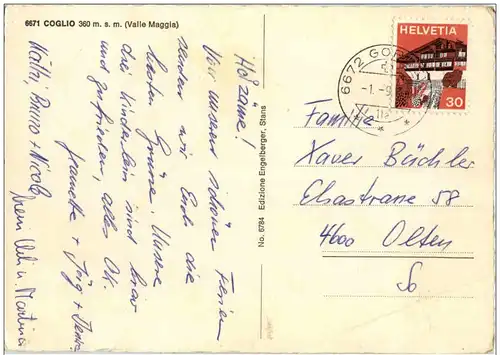 6671 COGLIO 360 m. s. m. (Valle Maggia)
Hoi zäme!
Von unseren schönen Ferien
senden wir Euch die
besten Grüsse. Unsere
drei Kinderlein sind brav
und zufrieden, alles OK.
Jeanette + Jürg + Denise
Käthi, Bruno + Nicole
Vreni Ueli u. Martina
No. 5784 Edizione Engelberger, Stans
HELVETIA
30
6672 GORD
-1.-9
Familie
Xaver Büchler
Elsastrasse 58
4600 Olten
So